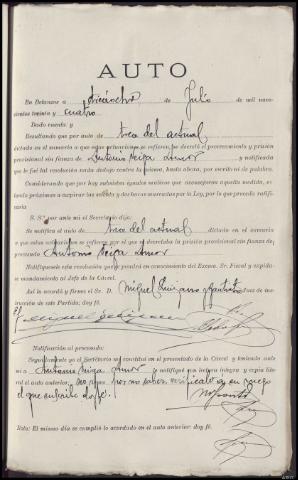 AUTO
En Betanzos a dieciocho de Julio de mil nove-
cientos treinta y cuatro
Dada cuenta y
Resultando que por auto de tres del actual
dictado en el sumario a que estas actuaciones se refieren, se decretó el procesamiento y prisión
provisional sin fianza de Antonio Veiga Amor y notificada
que le fué tal resolución nada dedujo contra la misma, hasta ahora, por escrito ni de palabra.
Considerando que por hoy subsisten iguales motivos que aconsejaron a aquella medida, es
visto prisión
S. S.ª por ante mi el Secretario dijo:
Se ratifica el auto de tres del actual dictado en el sumario
a que estas actuaciones se refieren por el que se decretaba la prisión provisional sin fianza de
presunto Antonio Veiga Amor
Notifíquese esta resolución y póngase en conocimiento del Excmo. Sr. Fiscal y expída-
se mandamiento al Jefe de la Cárcel.
Así lo acordó y firma el Sr. D. Miguel Juez de ins-
trucción de este Partido; doy fé.
Notificación al procesado.
Seguidamente yo el Secretario me constituí en el presentado de la Cárcel y teniendo ante
mi a Antonio Veiga Amor le notifiqué por lectura íntegra y copia lite-
ral el auto anterior; no firma por no saber, verifícalo a su ruego
el que suscribe doy fé.
Nota: El mismo día se cumplió lo acordado en el auto anterior doy fé.